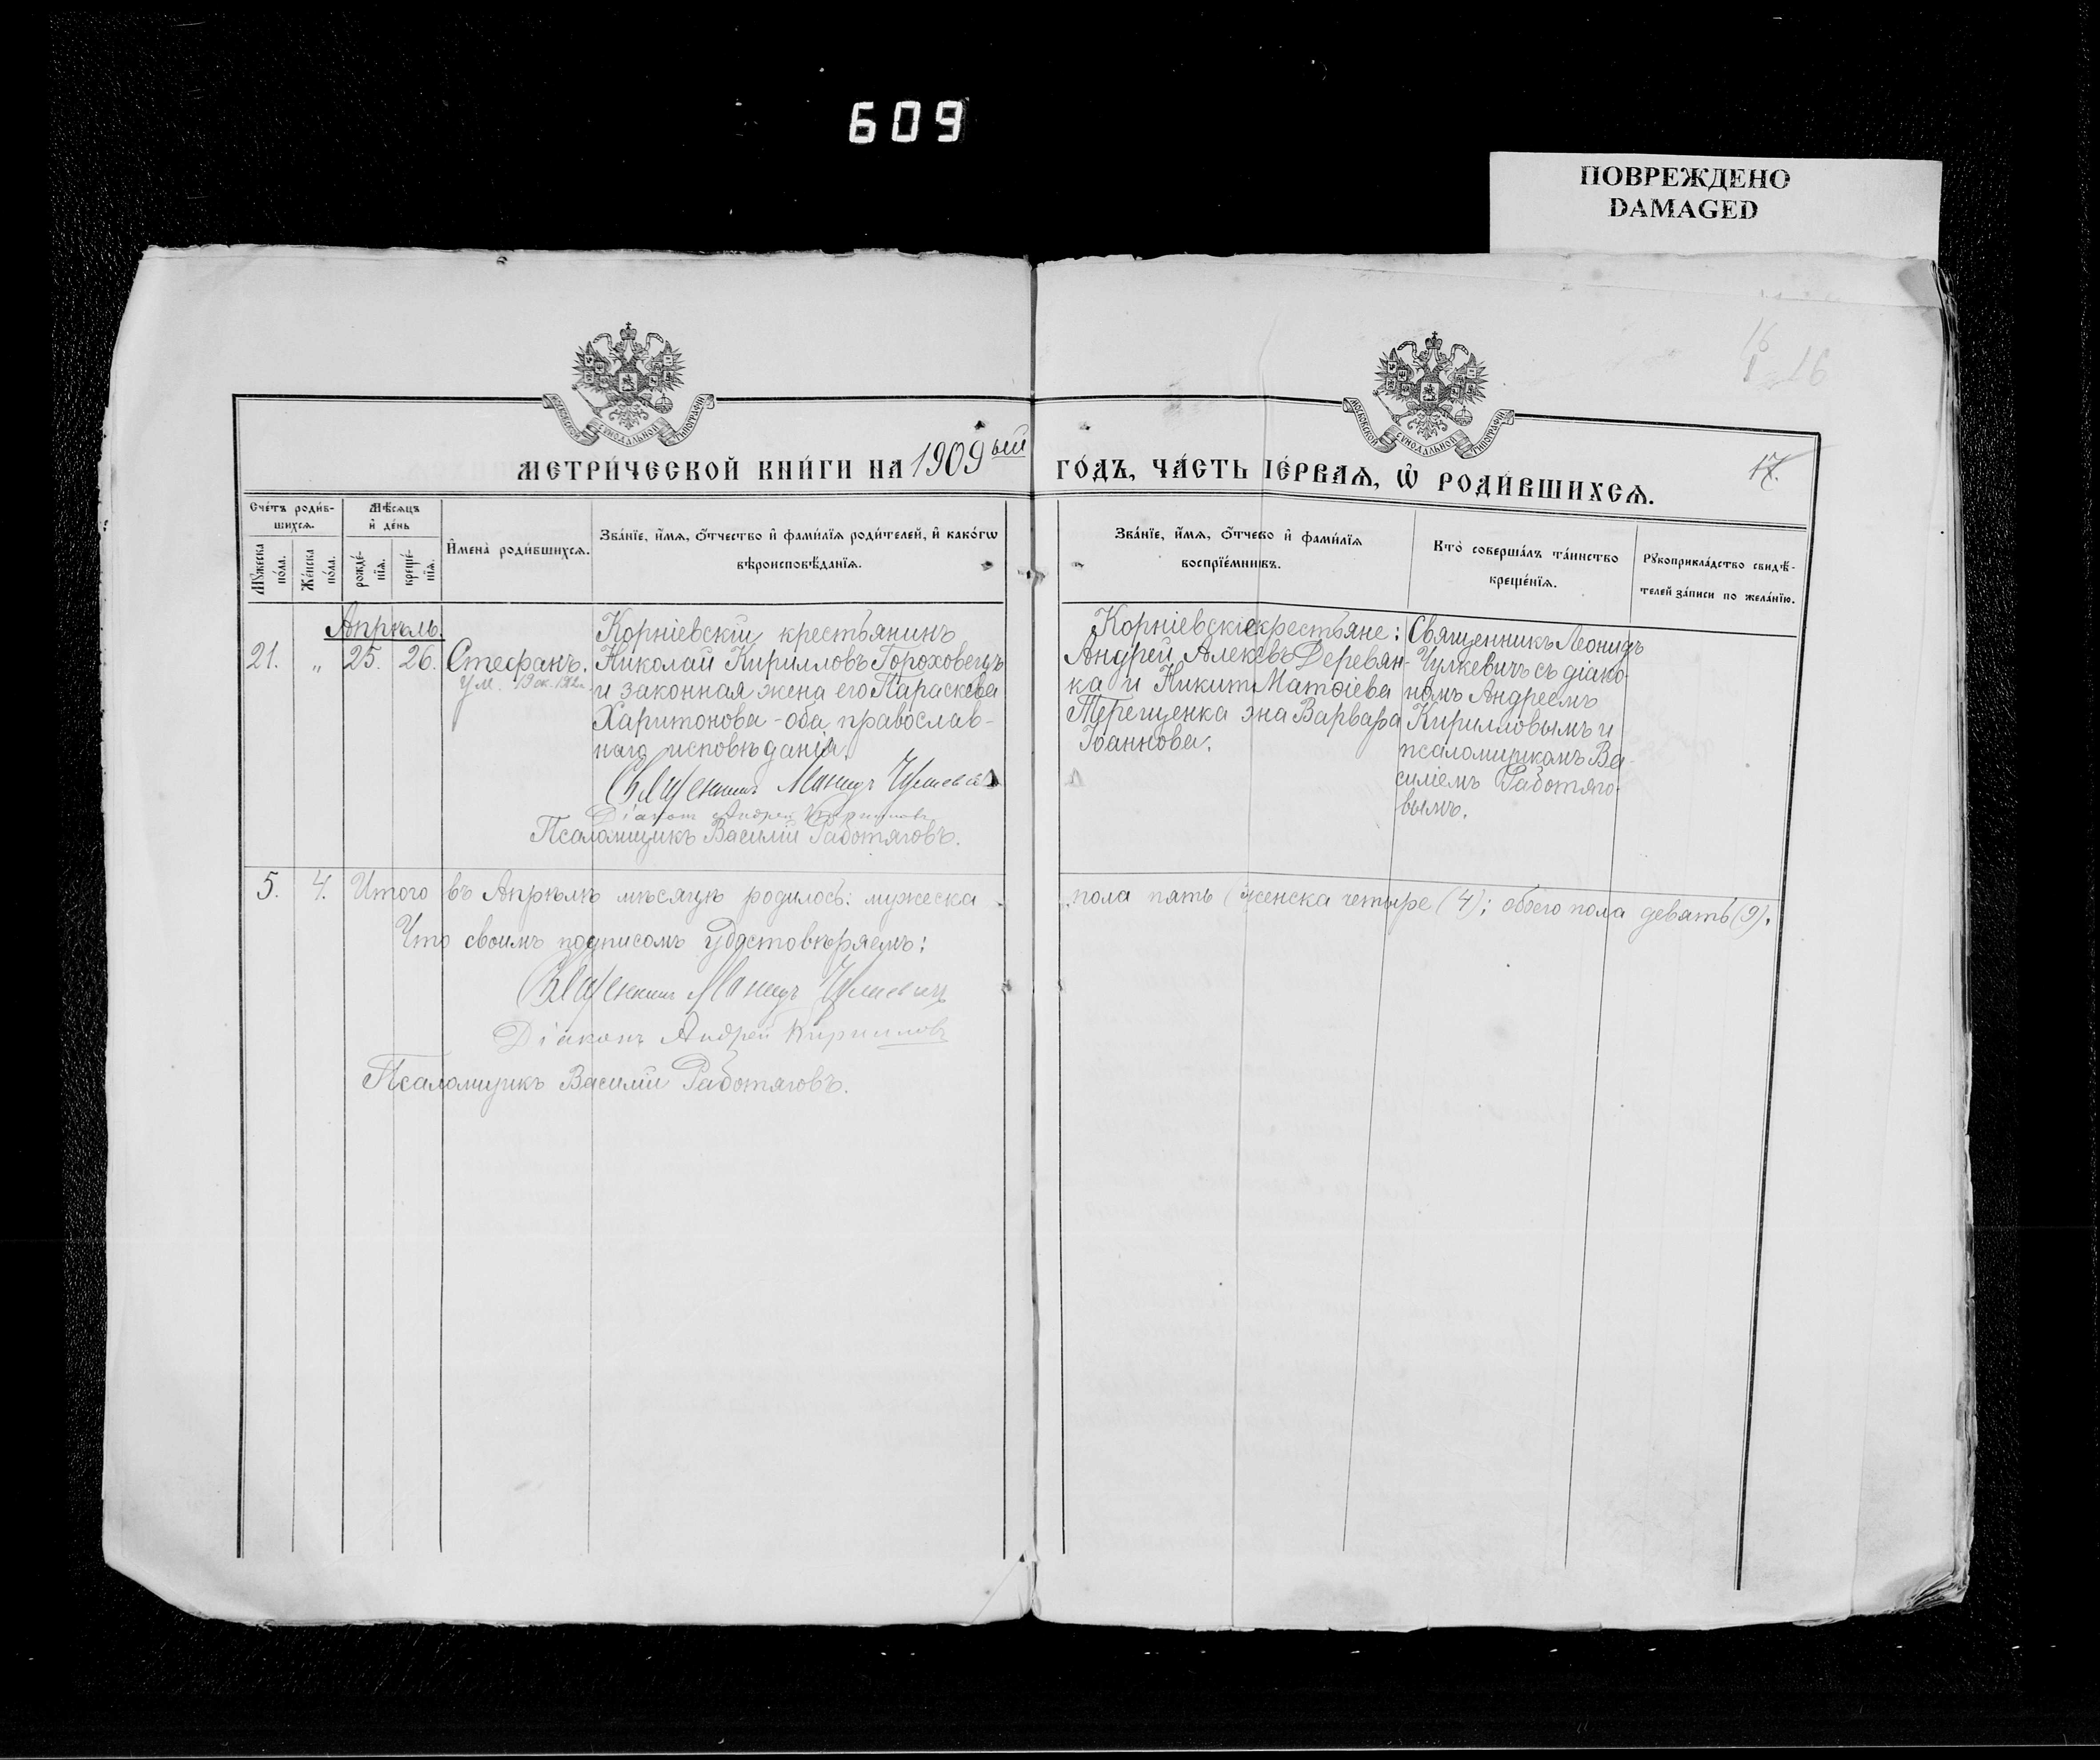 609
ПОВРЕЖДЕНО
DAMAGED
16
16
МОСКОВСКОЙ СѴНОДАЛЬНОЙ ТИПОГРАФІИ
МОСКОВСКОЙ СѴНОДАЛЬНОЙ ТИПОГРАФІИ
МЕТРИ́ЧЕСКОЙ КНИ́ГИ НА 1909ый ГО́ДЪ, ЧА́СТЬ ПЕ́РВАѦ, Ѡ҆ РОДИ́ВШИХСѦ.
17.
Сче́тъ роди́в-
шихсѧ.
Мꙋ́жеска
по́ла.
Же́нска
по́ла.
Мѣ́сѧцъ
и҆ де́нь
рожде́-
нїѧ.
креще́-
нїѧ.
И҆мена̀ роди́вшихсѧ.
Зва́нїе, и҆́мѧ, ѻ҆́тчество и҆ фами́лїѧ роди́телей, и҆ како́гѡ
вѣроисповѣ́данїѧ.
Зва́нїе, и҆́мѧ, ѻ҆́тчество и҆ фами́лїѧ
воспрїе́мникѡвъ.
Кто̀ соверша́лъ та́инство
креще́нїѧ.
Рꙋкоприкла́дство свидѣ́-
телей за́писи по жела́нїю.
Апрѣль
21. „ 25. 26. Стефанъ.
ум. 19 ок. 1912г.
Корніевскій крестьянинъ
Николай Кирилловъ Гороховецъ
и законная жена его Параскева
Харитонова - оба православ-
наго исповѣданія.
Священникъ Леонидъ Чулкевичъ
Діаконъ Андрей Кирилловъ
Псаломщикъ Василій Работяговъ.
Корніевскіе крестьяне:
Андрей Алексѣевъ Деревян-
ка и Никиты Матѳіева
Терещенка жена Варвара
Іоаннова.
Священникъ Леонидъ
Чулкевичъ съ діако-
номъ Андреемъ
Кирилловымъ и
псаломщикомъ Ва-
силіемъ Работяго-
вымъ.
5. 4. Итого въ Апрѣлѣ мѣсяцѣ родилось: мужеска пола пять ( женска четыре (4); обоего пола девять (9).
Что своимъ подписомъ удостовѣряемъ:
Священникъ Леонидъ Чулкевичъ
Діаконъ Андрей Кирилловъ
Псаломщикъ Василій Работяговъ.